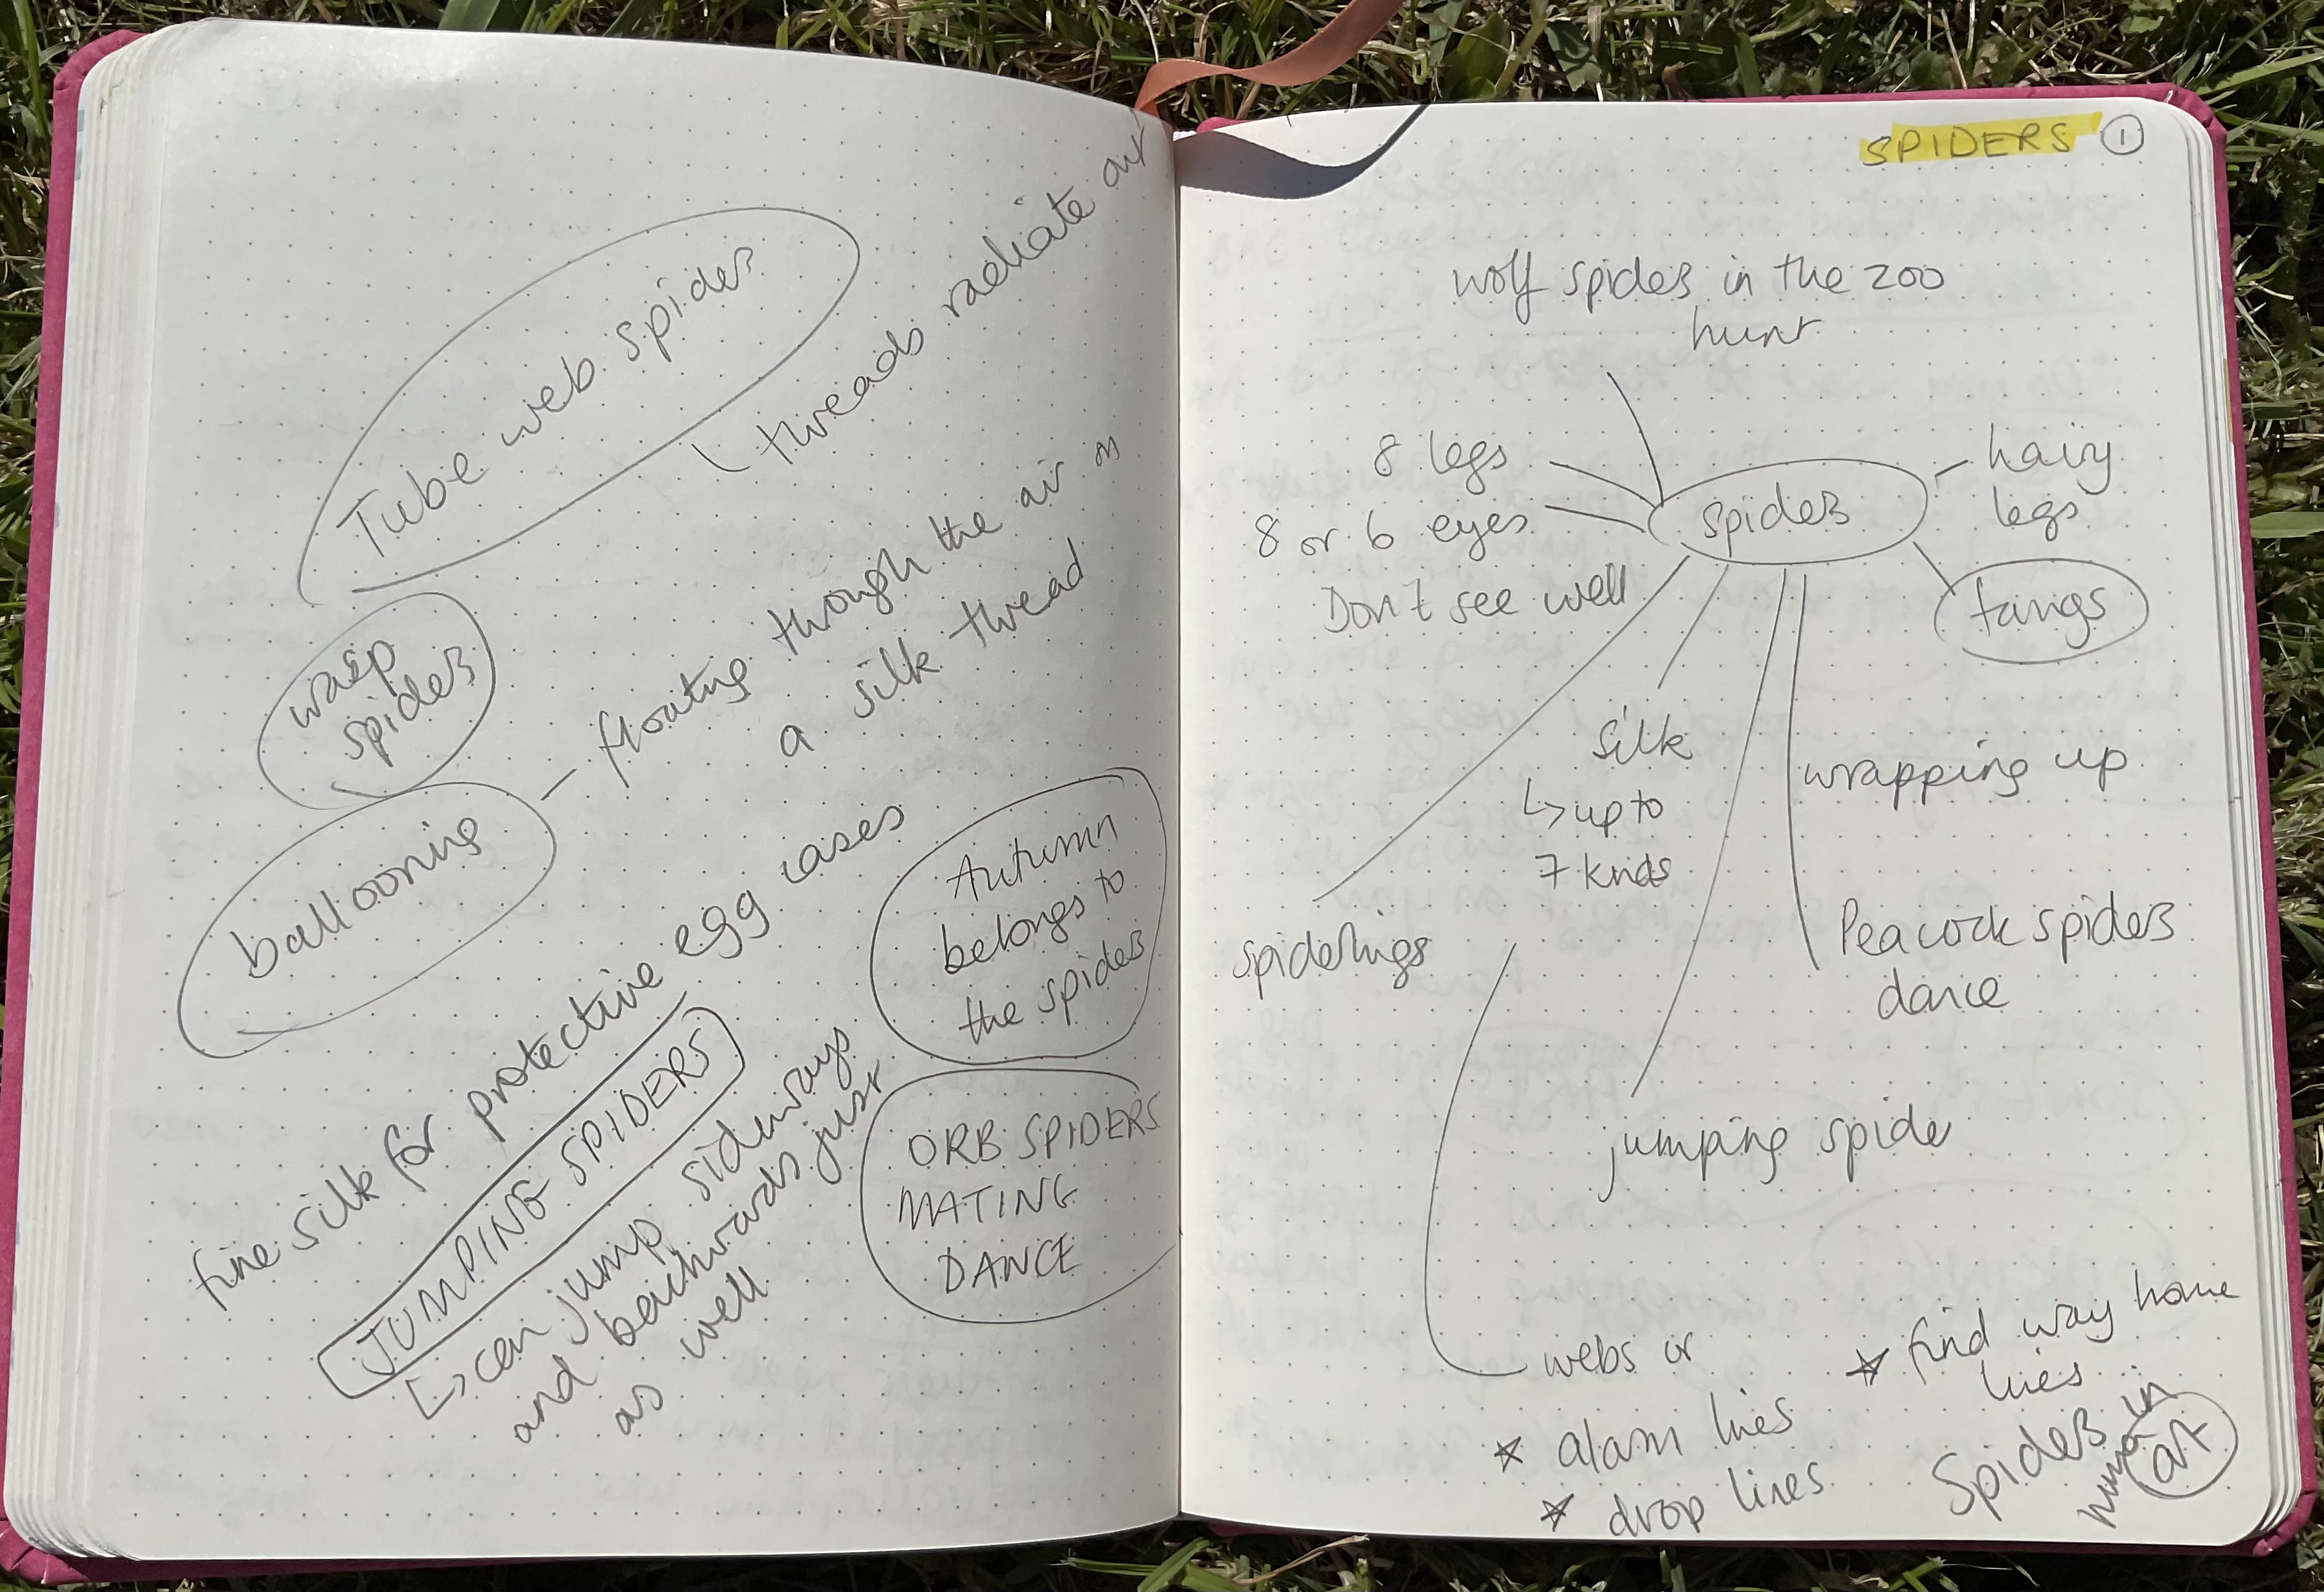 Tube web spiders
threads radiate out
wasp
spiders
ballooning
floating through the air on
a silk thread
fine silk for protective egg cases
JUMPING SPIDERS
can jump sideways
and backwards just
as well
Autumn
belongs to
the spiders
ORB SPIDERS
MATING
DANCE
SPIDERS 1
wolf spiders in the zoo
hunt
8 legs
8 or 6 eyes
Don't see well
spiders
hairy
legs
fangs
silk
up to
7 kinds
wrapping up
spiderlings
Peacock spiders
dance
jumping spider
webs or
★ alarm lines
★ drop lines
★ find way home
lines
Spiders in
art